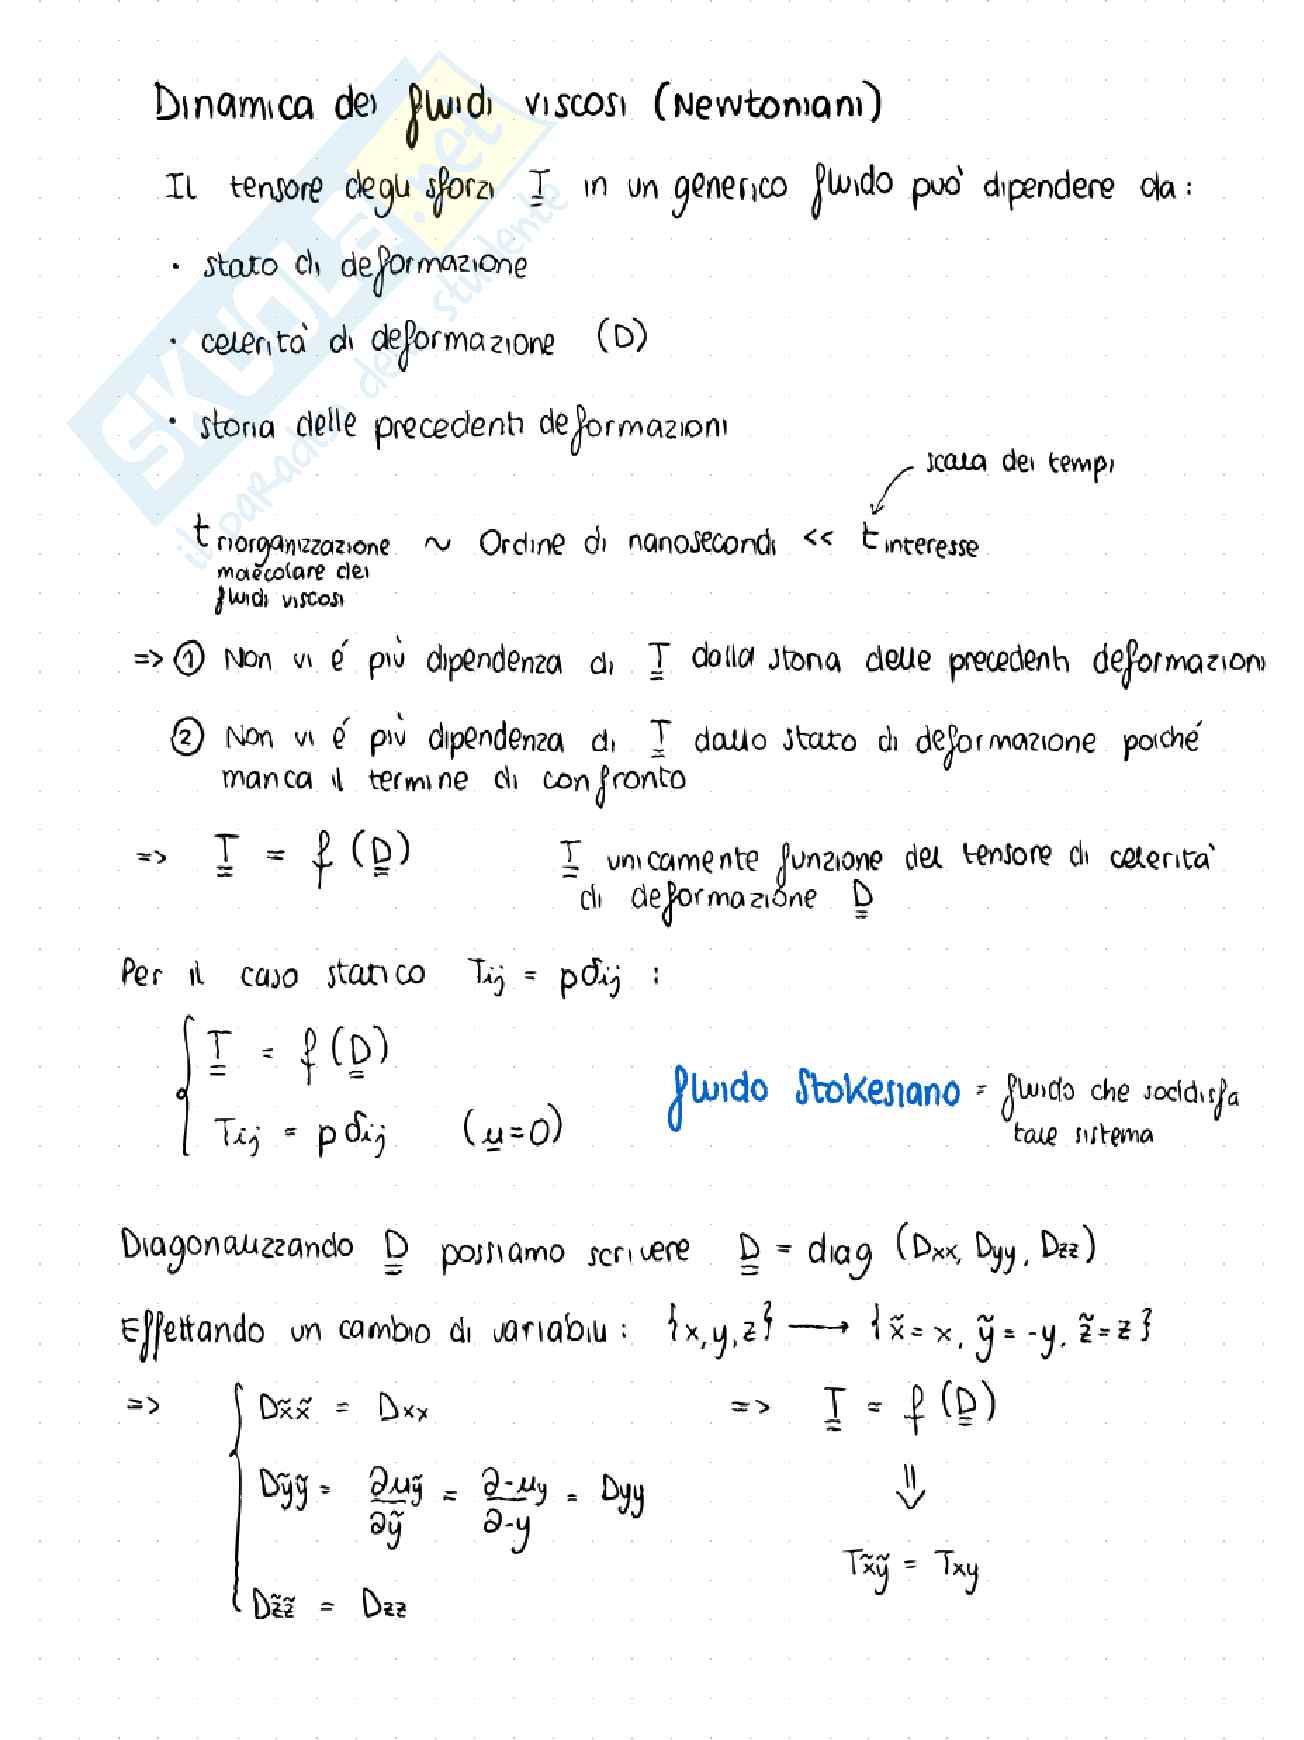 Dinamica dei fluidi viscosi (Newtoniani)
Il tensore degli sforzi T in un generico fluido può dipendere da:
· stato di deformazione
· celerità di deformazione (D)
· storia delle precedenti deformazioni
scala dei tempi
t riorganizzazione molecolare dei fluidi viscosi ~ Ordine di nanosecondi << t interesse
=> ① Non vi é più dipendenza di T dalla storia delle precedenti deformazioni
② Non vi é più dipendenza di T dallo stato di deformazione poiché
manca il termine di confronto
=> T = f (D) T unicamente funzione del tensore di celerità
di deformazione D
Per il caso statico Tij = pδij :
T = f (D)
Tij = pδij (u=0)
fluido Stokesiano = fluido che soddisfa
tale sistema
Diagonalizzando D possiamo scrivere D = diag (Dxx, Dyy, Dzz)
Effettando un cambio di variabili: {x,y,z} ⟶ {x̃=x, ỹ=-y, z̃=z}
=> { Dx̃x̃ = Dxx => T = f (D)
Dỹỹ = ∂uỹ/∂ỹ = ∂-uy/∂-y = Dyy ⇓
Tx̃ỹ = Txy
Dz̃z̃ = Dzz
SKUOLA.net
il paradiso dello studente